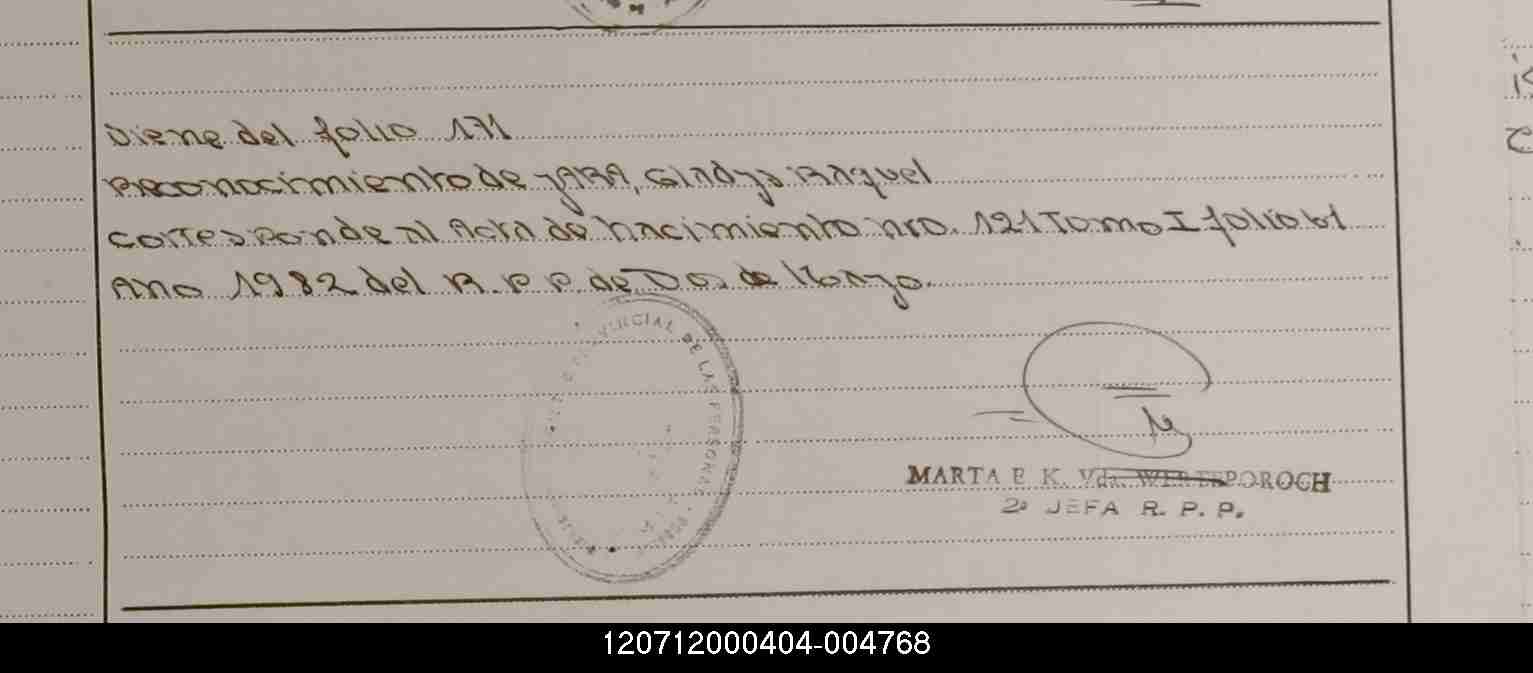 Viene del folio 171
Reconocimiento de JARA, Gladys Raquel
corresponde al Acta de nacimiento nro. 121 Tomo I folio 61
Año 1982 del R.P.P. de Dos de Mayo.
PROVINCIAL DE LAS PERSONAS
MARTA E K. Vda. WERTSPOROCH
2ª JEFA R. P. P.
120712000404-004768